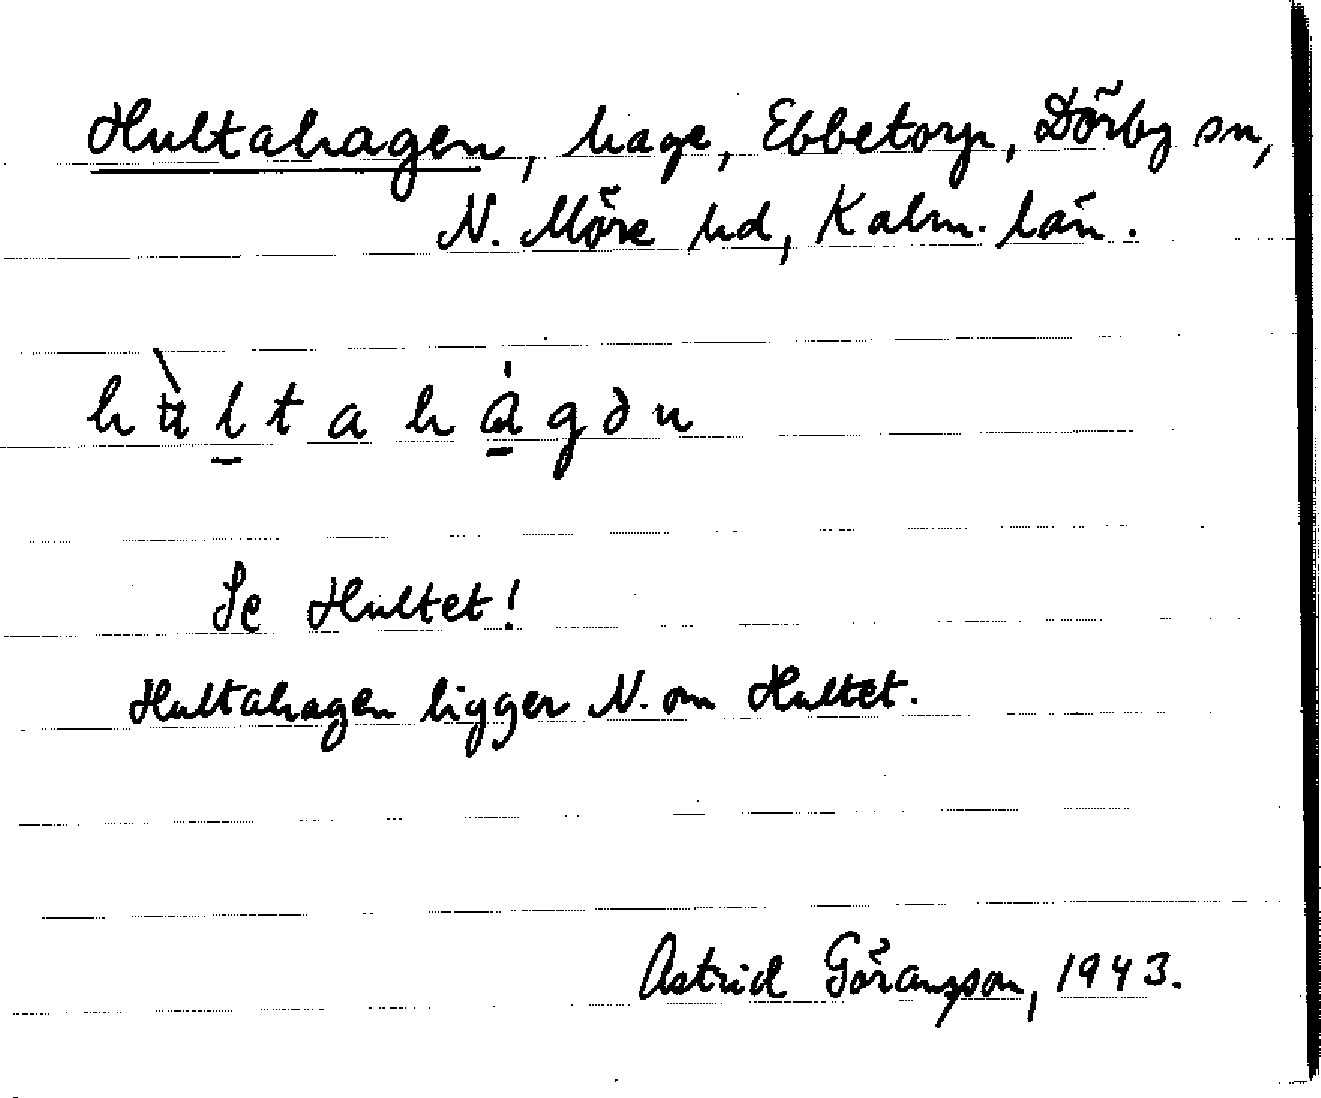 Hultahagen, hage, Ebbetorp, Dörby sn,
N. Möre hd, Kalm. län.
hùltahágən
Se Hultet!
Hultahagen ligger N. om Hultet.
Astrid Göransson, 1943.